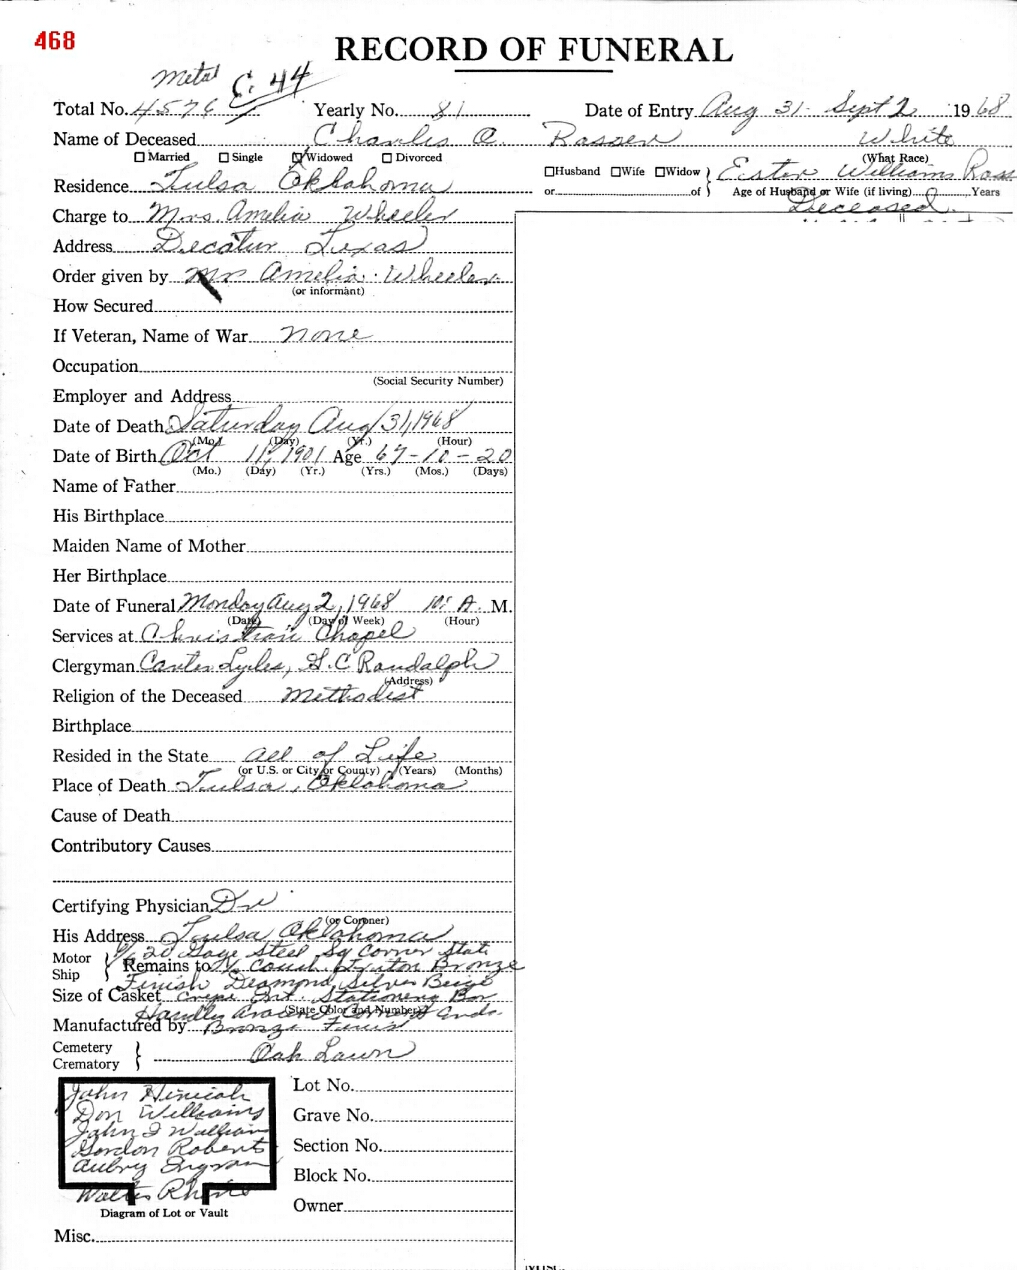 468
RECORD OF FUNERAL
Metal C. 44
Total No. 4576 Yearly No. 81 Date of Entry Aug 31- Sept 2 1968
Name of Deceased Charles A. Rosser White
☐ Married ☐ Single ☑ Widowed ☐ Divorced (What Race)
Residence Tulsa Oklahoma ☐ Husband ☐ Wife ☐ Widow } Ester Williams Ross
or of } Age of Husband or Wife (if living) Years
Deceased
Charge to Mrs. Amelia Wheeler
Address Decatur Texas
Order given by Mrs Amelia Wheeler
(or informant)
How Secured
If Veteran, Name of War None
Occupation
(Social Security Number)
Employer and Address
Date of Death Saturday Aug 31, 1968
(Mo.) (Day) (Yr.) (Hour)
Date of Birth Oct 11, 1901 Age 67-10-20
(Mo.) (Day) (Yr.) (Yrs.) (Mos.) (Days)
Name of Father
His Birthplace
Maiden Name of Mother
Her Birthplace
Date of Funeral Monday Aug 2, 1968 10: A. M.
(Date) (Day of Week) (Hour)
Services at Christian Chapel
Clergyman Carter Lyles, G. C Randalph
(Address)
Religion of the Deceased Methodist
Birthplace
Resided in the State All of Life
(or U.S. or City or County) (Years) (Months)
Place of Death Tulsa, Oklahoma
Cause of Death
Contributory Causes
Certifying Physician Dr
(or Coroner)
His Address Tulsa Oklahoma
20 Gage Steel Sq Corner
Motor Ship { Remains to Bronze
Finish Diamond Silver Beige
Size of Casket Crepe Int. Stationing Bar
(State Color and Number)
Handles Around Corners Ends.
Manufactured by Bronze Finish
Cemetery Crematory } Oak Lawn
John
Don Williams
John
Gordon Roberts
Aubry Ingram
Walter
Diagram of Lot or Vault
Lot No.
Grave No.
Section No.
Block No.
Owner
Misc.